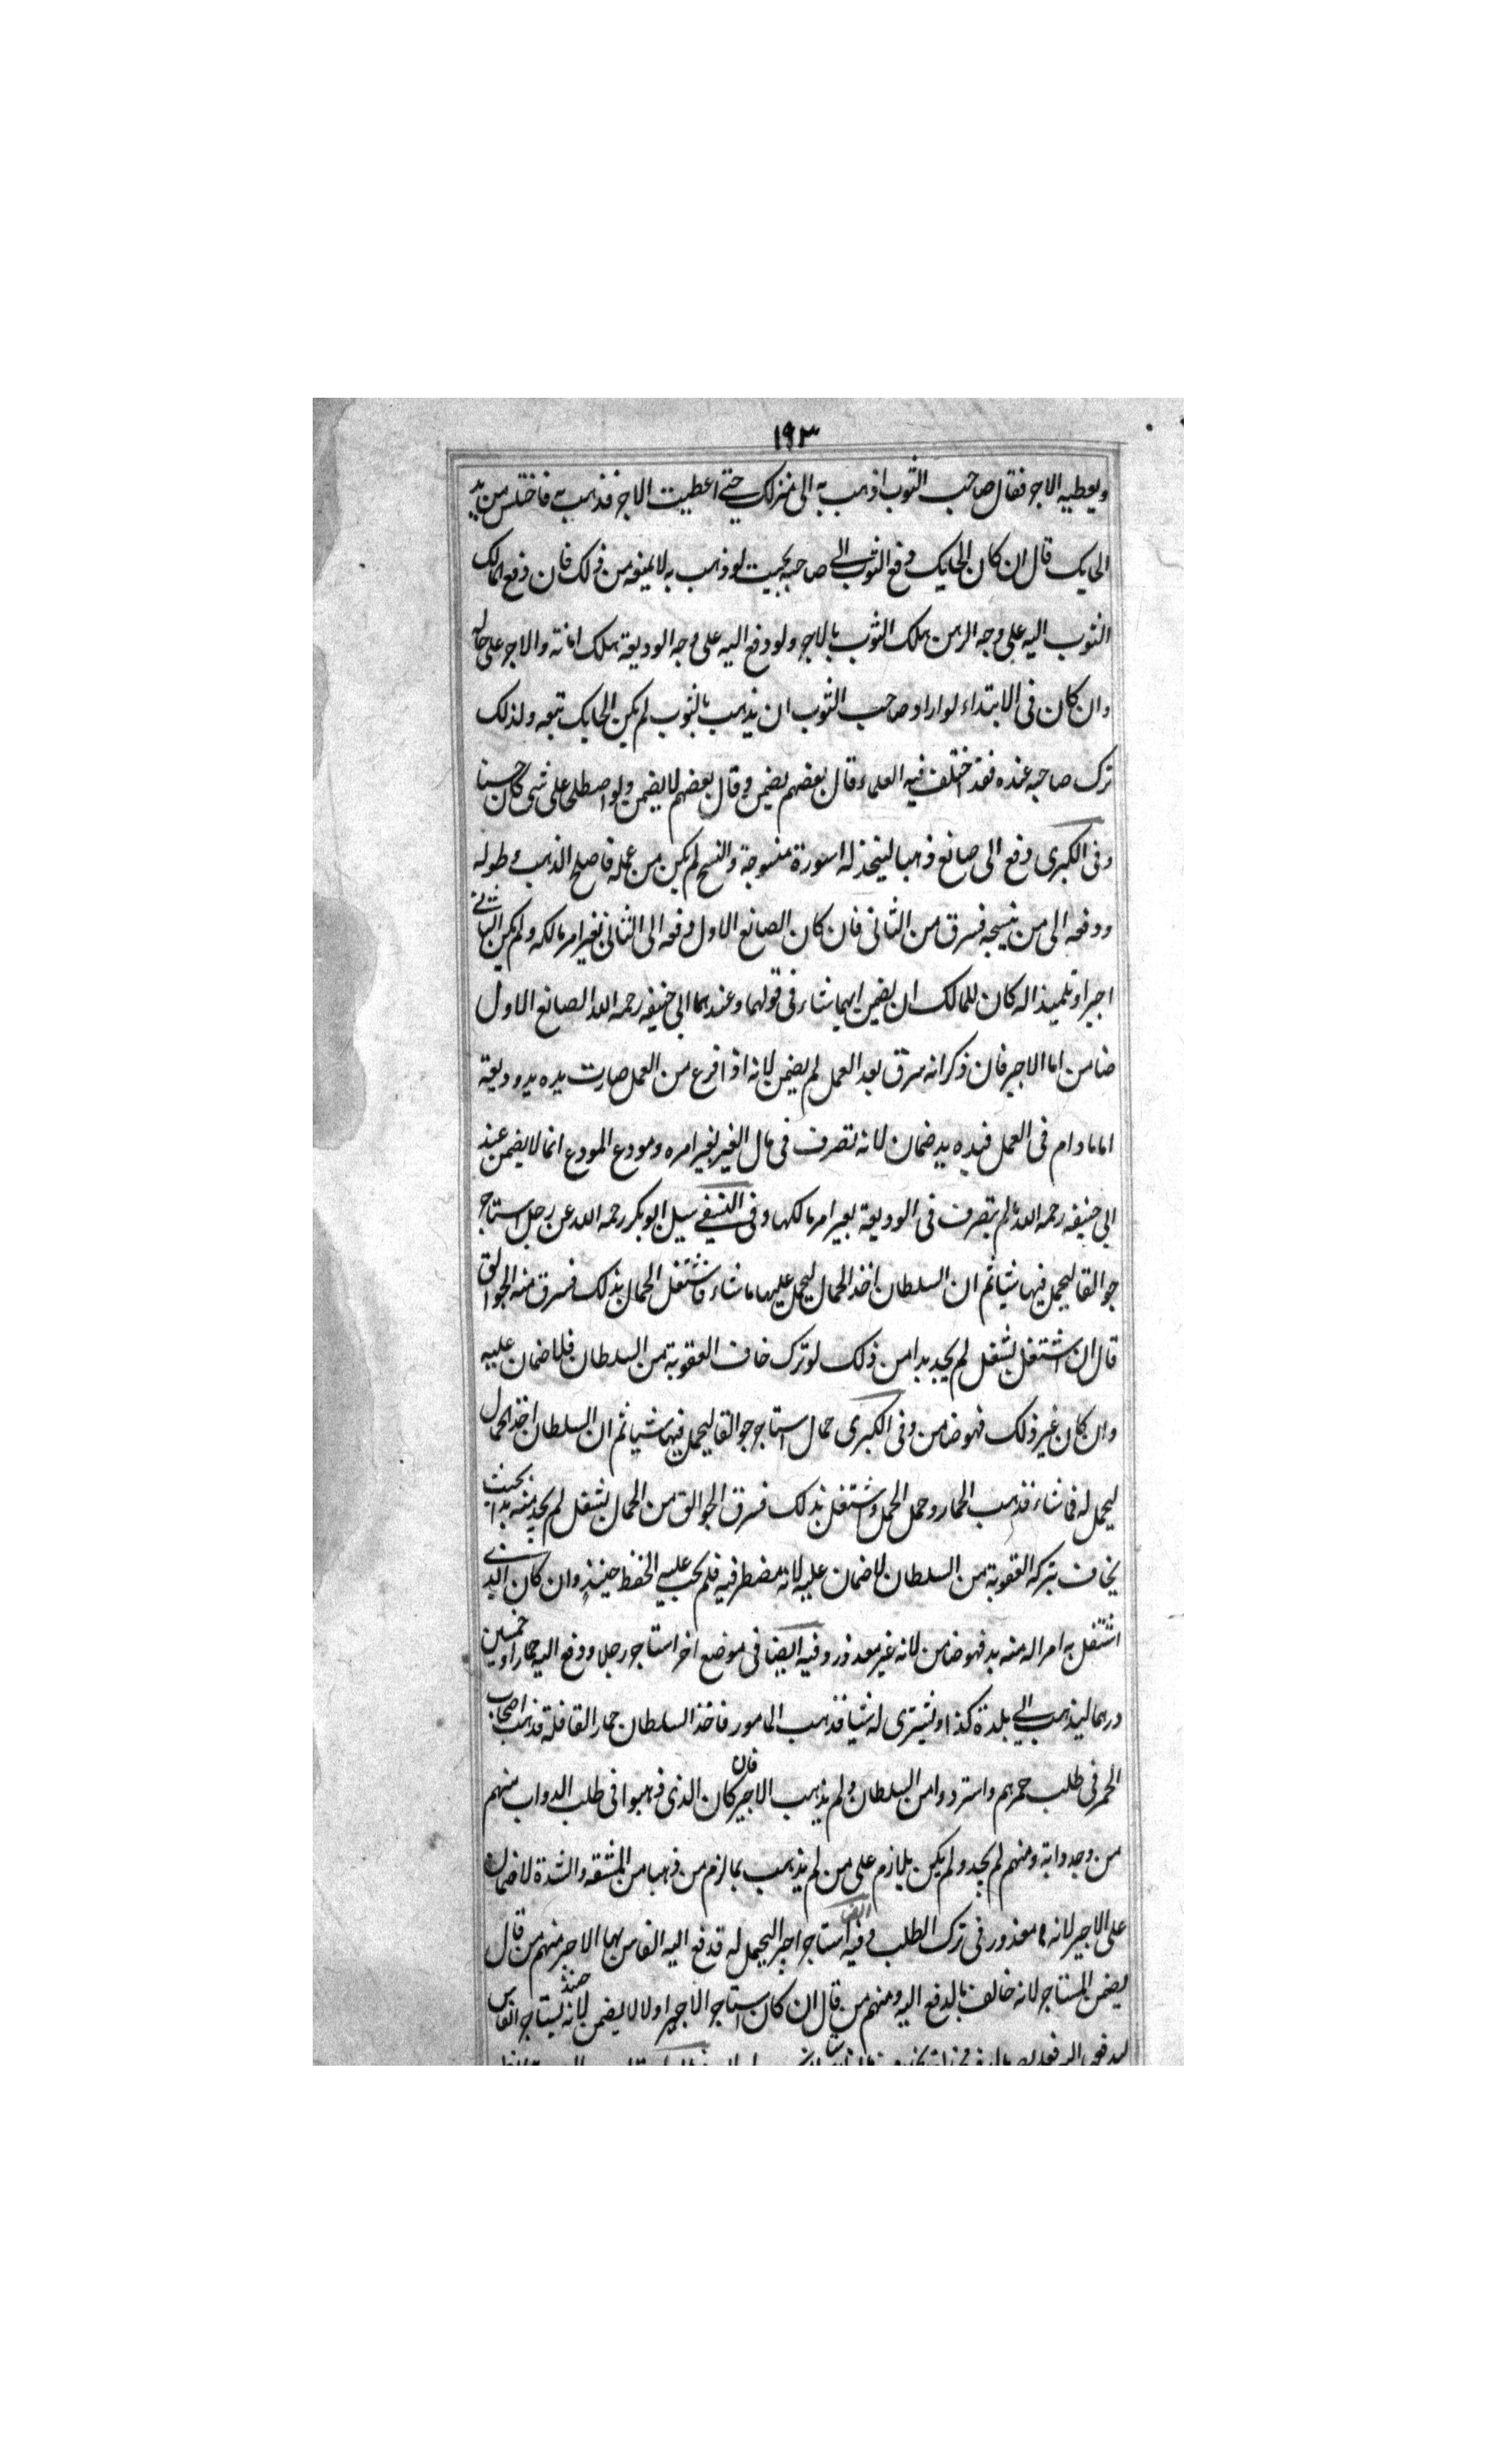 ١٩٣
ويعطيه الاجر فقال صاحب الثوب اذهب به الى منزلك حتى اعطيت الاجر فذهب به فاختلس من يد
الحايك قال ان كان الحايك دفع الثوب الى صاحبه بحيث لو ذهب به لا يمنعه من ذلك فان دفع المالك
الثوب اليه على وجه الرهن يهلك الثوب بالاجر ولو دفع اليه على وجه الوديعة يهلك امانة والاجر على حاله
وان كان فى الابتداء لو اراد صاحب الثوب ان يذهب بالثوب لم يكن الحايك تبعه ولذلك
ترك صاحبه عنده فقد اختلف فيه العلماء وقال بعضهم يضمن وقال بعضهم لا يضمن ولو اصطلحا على شى كان حسنا
وفى الكبرى دفع الى صانع ذهبا ليتخذ له اسورة منسوجة والنسج لم يكن من عمله فاصلح الذهب وطوله
ودفعه الى من ينسجه فسرق من الثانى فان كان الصانع الاول دفعه الى الثانى بغير امر مالكه ولم يكن الثانى
اجيرا وتلميذا له كان للمالك ان يضمن ايهما شاء فى قولهما وعند ابى حنيفه رحمه الله الصانع الاول
ضامن اما الاجير فان ذكر انه سرق بعد العمل لم يضمن لانه اذا فرع من العمل صارت يده يد وديعة
اما مادام فى العمل فيده يد ضمان لانه تصرف فى مال الغير بغير امره ومودع المودع انما لا يضمن عند
ابى حنيفه رحمه الله ما لم يتصرف فى الوديعة بغير امر مالكها وفى النسفى سيل ابو بكر رحمه الله عن رجل استاجر
جوالقا ليحمل فيها شيا ثم ان السلطان اخذ الحمال ليحمل عليها ما شاء فاشتغل الحمال بذلك فسرق منه الجوالق
قال ان اشتغل بشغل لم يجد بدا من ذلك لو ترك خاف العقوبة من السلطان فلا ضمان عليه
وان كان غير ذلك فهو ضامن وفى الكبرى حمال استاجر جوالقا ليحمل فيها شيا ثم ان السلطان اخذ الحمال
ليحمل له فما شاء فذهب الحمار وحمل الحمل واشتغل بذلك فسرق الجوالق من الحمال بشغل لم يجد منه بدا بحيث
يخاف بتركه العقوبة من السلطان لا ضمان عليه لانه مضطر فيه فلم يجب عليه الحفظ حينئذ وان كان الذى
اشتغل به امرا له منه بد فهو ضامن لانه غير معذور وفيه ايضا فى موضع اخر استاجر رجلا ودفع اليه حمارا وخمسين
درهما ليذهب الى بلدة كذا ويشترى له شيا فذهب المامور فاخذ السلطان حمار القافلة فذهب اصحاب
الحمر فى طلب حمرهم واستردوا من السلطان ولم يذهب الاجير فان كان الذى ذهبوا فى طلب الدواب منهم
من وجد دابته ومنهم لم يجد ولم يكن يلازم على من لم يذهب بما لزم من ذهب من المشقه والشدة لا ضمان
على الاجير لانه معذور فى ترك الطلب وفيه ايضا استاجر اجيرا ليحمل له فدفع اليه الفاس بها الاجير منهم من قال
يضمن المستاجر لانه خالف بالدفع اليه ومنهم من قال ان كان استاجر الاجير اولا لا يضمن لانه يستاجر الفاس